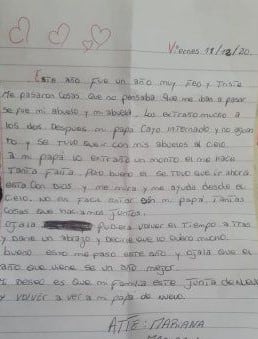 Viernes 18/12/20.
Este año fue un año muy feo y triste
Me pasaron cosas que no pensaba que me iban a pasar
se fue mi abuelo y mi abuela. Los extraño mucho a
los dos. Despues mi papa cayo internado y no aguan
to y se tuvo que ir con mis abuelos al cielo
A mi papa lo extraño un monton el me hace
tanta falta. Pero bueno el se tuvo que ir ahora
esta con Dios y me mira y me ayuda desde el
cielo. No es facil estar sin mi papa. Tantas
cosas que haciamos juntos.
Ojala pudiera volver el tiempo atras
y darle un abrazo y decirle que lo quiero mucho.
bueno asi me paso este año y ojala que el
año que viene se un año mejor.
Mi deseo es que mi familia este junta de nuevo
y volver a ver a mi papa de nuevo.
ATTE: MARIANA